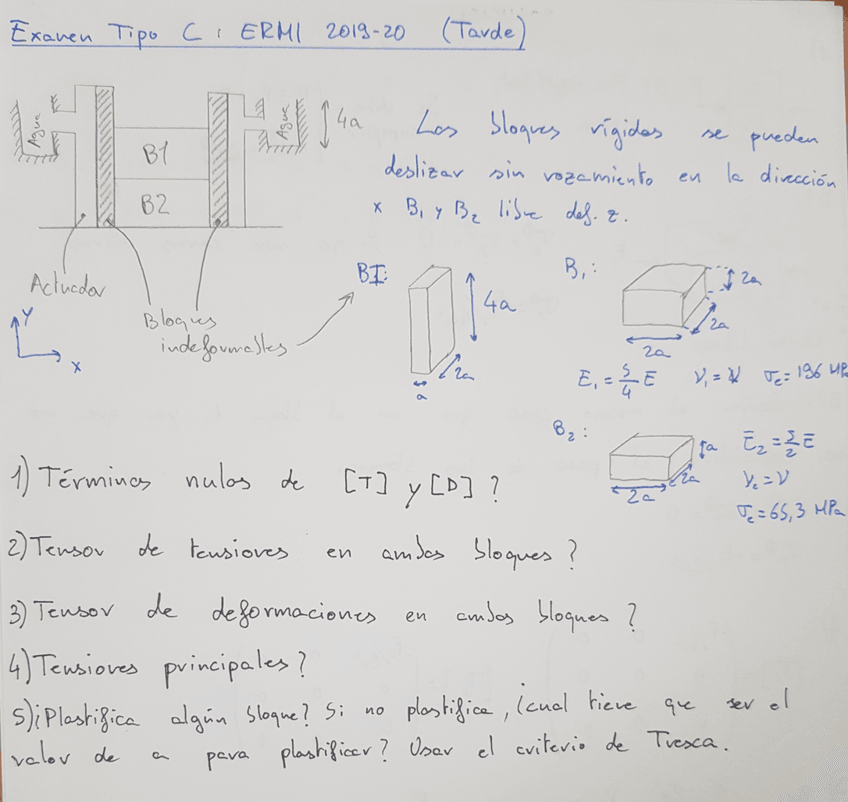 Examen Tipo C : ERMI 2019-20 (Tarde)
Agua
Agua
4a
B1
B2
Los bloques rígidos se pueden
deslizar sin rozamiento en la dirección
x B₁ y B₂ libre def. z.
Actuador
Bloques
indeformables
Y
X
BI:
4a
2a
a
B₁:
2a
2a
2a
E₁ = 5/4 E ν₁ = ν σe = 196 MPa
B₂:
a
2a
2a
E₂ = 5/2 E
ν₂ = ν
σe = 65,3 MPa
1) Términos nulos de [T] y [D] ?
2) Tensor de tensiones en ambos bloques ?
3) Tensor de deformaciones en ambos bloques ?
4) Tensiones principales ?
5) ¿Plastifica algún bloque? Si no plastifica, ¿cual tiene que ser el
valor de a para plastificar ? Usar el criterio de Tresca.